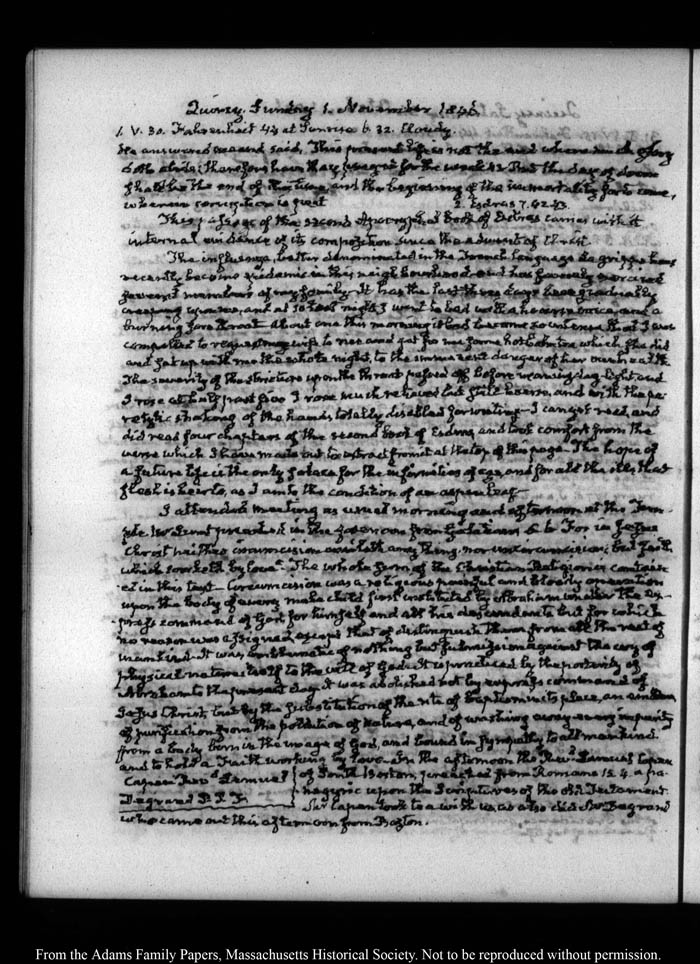 Quincy. Sunday 1. November 1846.
1. V. 30. Fahrenheit 44 at Sunrise 6. 32. Cloudy.
He answered me and said, This present life is not the end where much glory
doth abide; therefore have they prayed for the weak 42 But the day of doom
shall be the end of this time, and the beginning of the immortality for to come,
wherein corruption is past 2. Esdras 7. 42. 43.
This passage of the second Apocryphal Book of Esdras carries with it
internal evidence of its composition since the advent of Christ.
The influenza, better denominated in the French language la grippe has
recently become epidemic in this neighbourhood and has severely exercised
several members of my family. It has the last three days been gradually
creeping upon me, and at 10 last night I went to bed with a hoarse voice, and a
burning sore throat About one this morning it had become so intense that I was
compelled to request my wife to rise and get for me some hot water, which she did
and sat up with me the whole night, to the imminent danger of her own health.
The severity of the stricture upon the throat passed off before morning day-light and
I rose at half past five I rose much relieved but still hoarse, and with the pa-
ralytic shaking of the hands totally disabled for writing. I can yet read, and
did read four chapters of the second book of Esdras, and took comfort from the
verse which I have made out to extract from it at the top of this page. The hope of
a future life is the only solace for the infirmities of age, and for all the ills that
flesh is heir to, as I am to the condition of an aspen leaf.
I attended meeting as usual morning and afternoon at the Tem-
ple. Mr Lunt preached in the forenoon from Galatians 5. 6 "For in Jesus
Christ neither circumcision availeth any thing, nor uncircumcision; but faith
which worketh by love". The whole form of the Christian Religion is contain-
ed in this text. Circumcision was a religious painful and bloody operation
upon the body of every male child first instituted by Abraham under the ex-
press command of God for himself and all his descendants but for which
no reason was assigned except that of distinguish them from all the rest of
mankind. It was emblematic of nothing but submission against the cry of
physical nature itself to the will of God. It is practiced by the posterity of
Abraham to the present day. It was abolished not by express command of
Jesus Christ, but by the substitution of the rite of Baptism in its place, an emblem
of purification from the pollution of nature, and of washing away every impurity
from a body born in the image of God, and bound in sympathy to all mankind.
and to hold a Faith working by love. In the afternoon the Revd. Lemuel Capen
Capen Revd. Lemuel of South Boston, preached from Romans 15. 4. a pa-
Degrand P. P. F. negyric upon the Scriptures of the old Testament
Mr Capen took tea with us as also did Mr Degrand
who came out this afternoon from Boston.
From the Adams Family Papers, Massachusetts Historical Society. Not to be reproduced without permission.